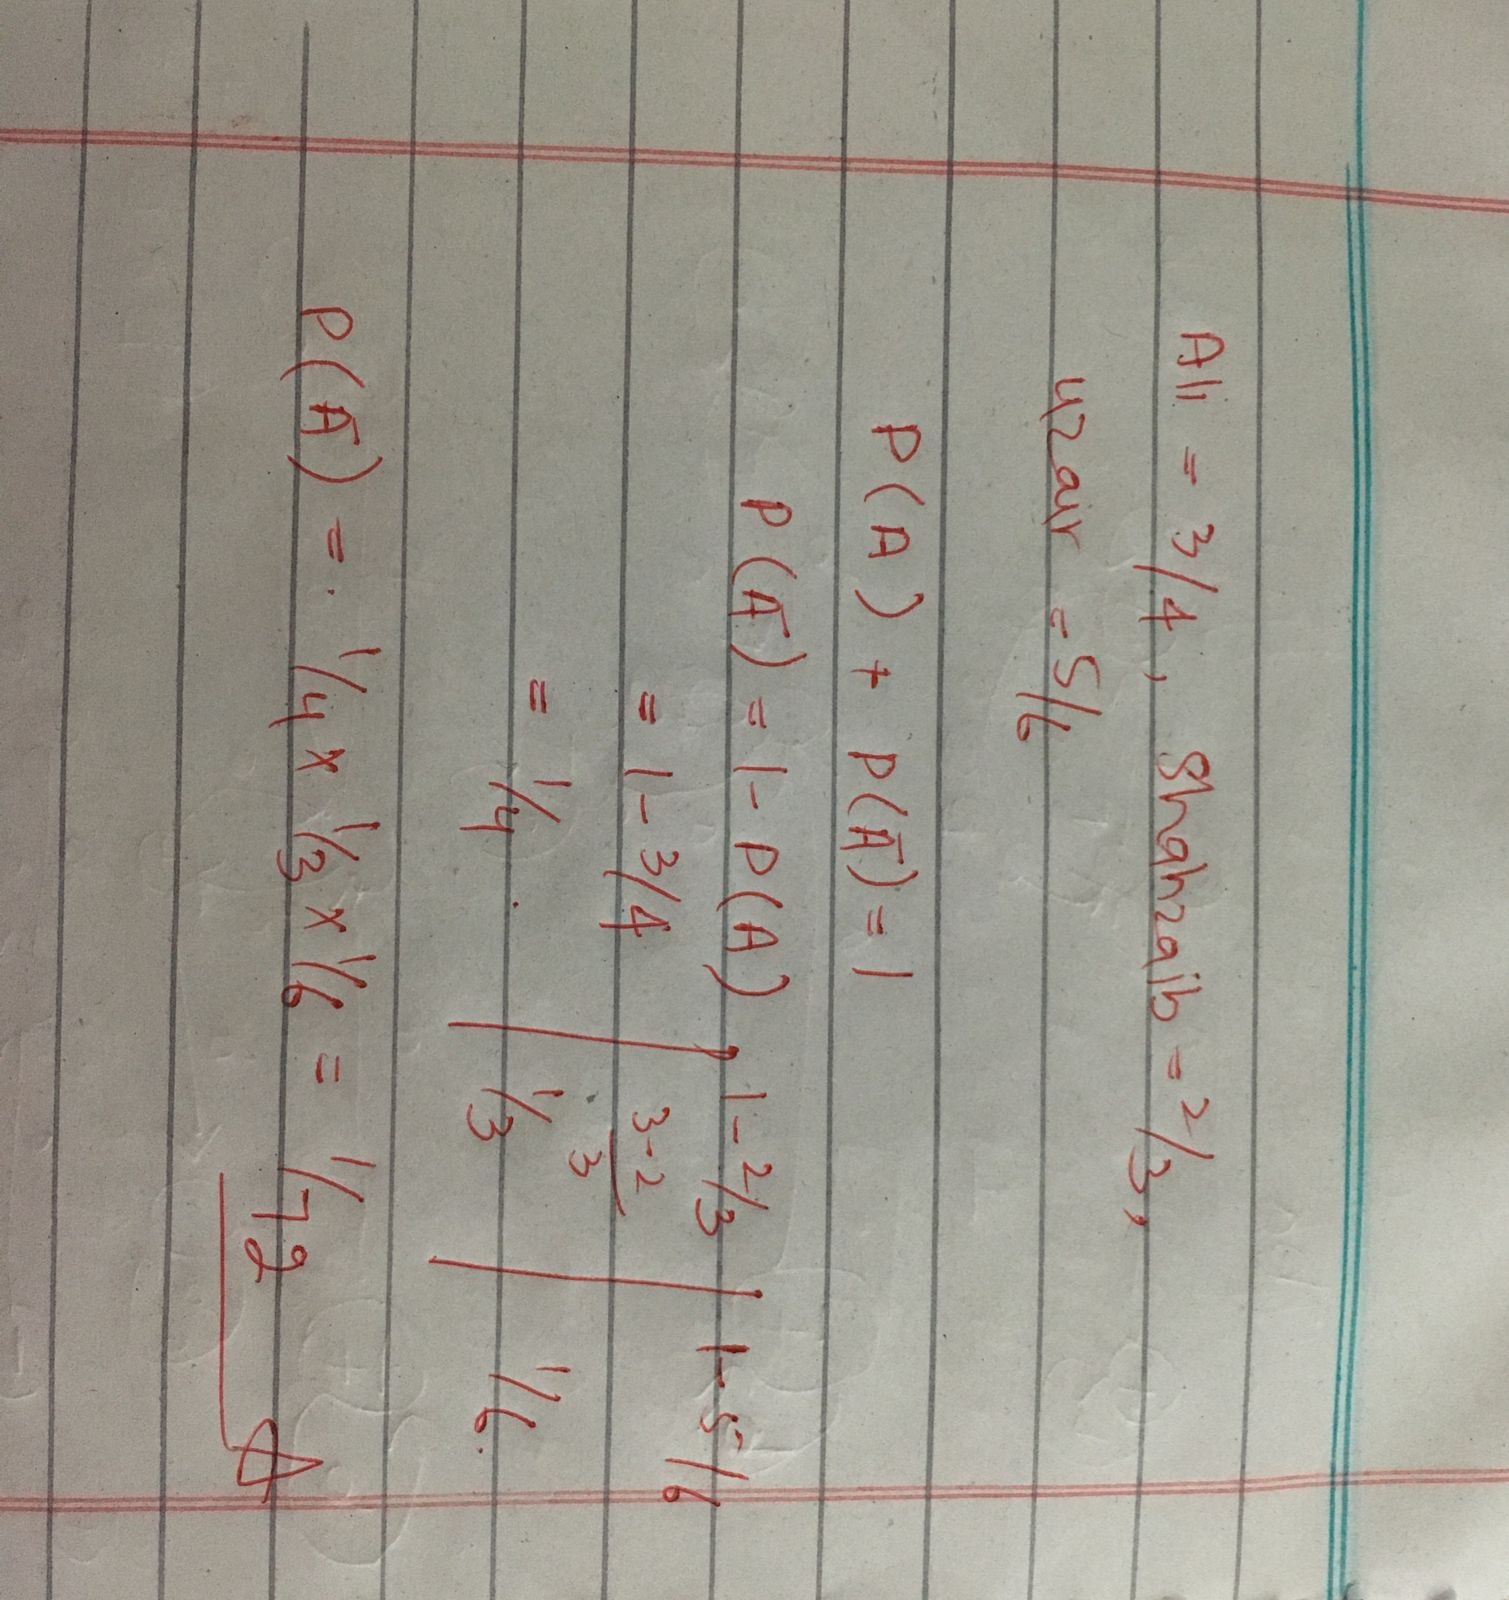 Ali = 3/4, Shahzaib = 2/3,
Uzair = 5/6
P(A) + P(A̅) = 1
P(A̅) = 1 - P(A) | 1 - 2/3 | 1 - 5/6
= 1 - 3/4 | 3-2/3
= 1/4. | 1/3 | 1/6.
P(A̅) = . 1/4 x 1/3 x 1/6 = 1/72